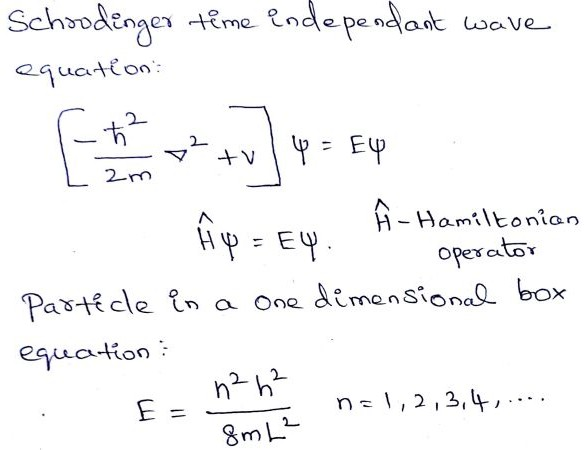 Schrodinger time independant wave
equation:
[-ħ²/2m ∇² + V] ψ = Eψ
Ĥψ = Eψ. Ĥ - Hamiltonian
operator
Particle in a one dimensional box
equation:
E = n²h²/8mL² n = 1, 2, 3, 4, ....